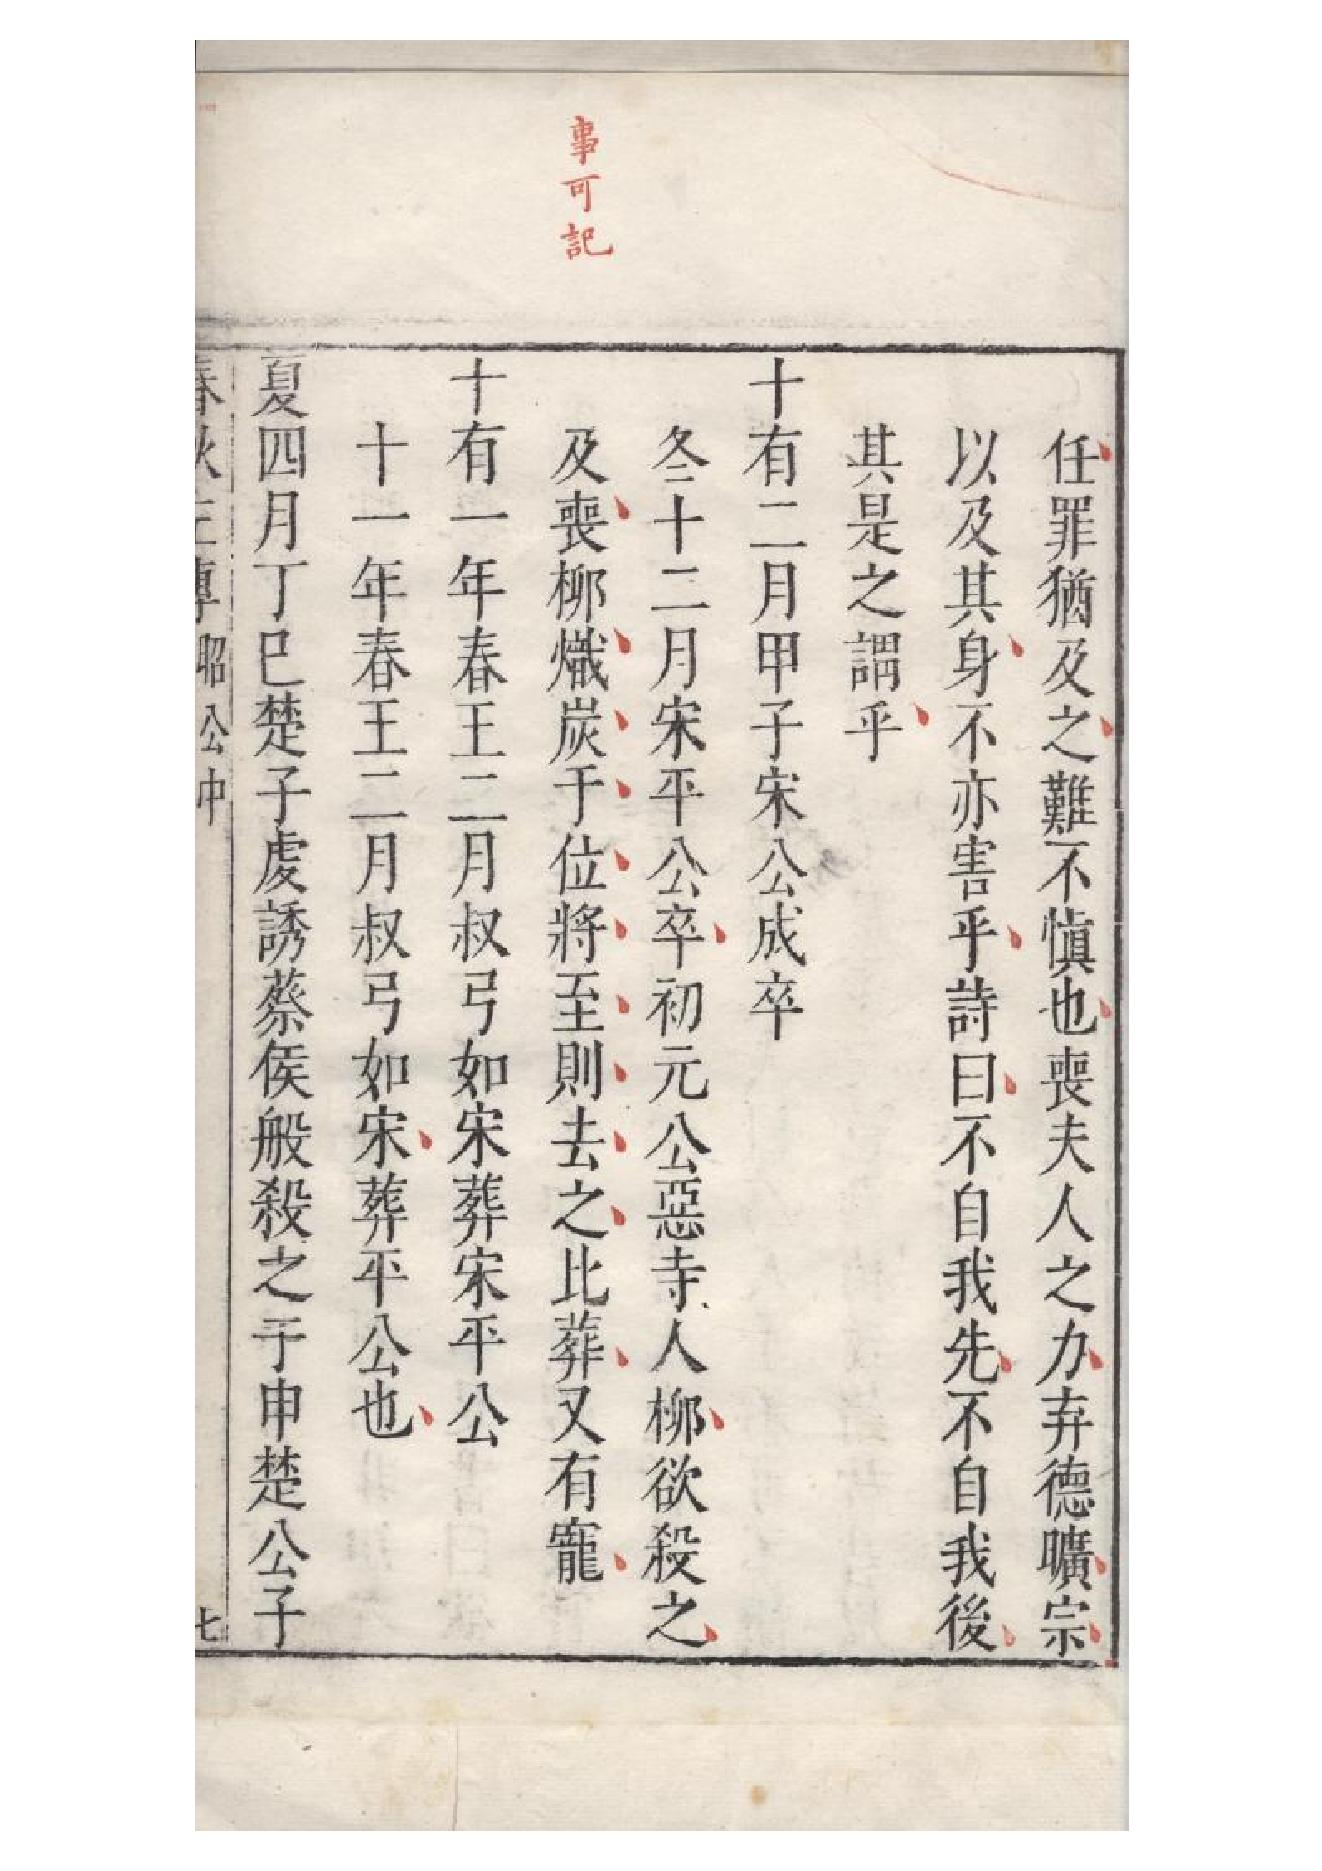 事可記
任罪猶及之難不愼也喪夫人之力弃德曠宗
以及其身不亦害乎詩曰不自我先不自我後
其是之謂乎
十有二月甲子宋公成卒
冬十二月宋平公卒初元公惡寺人柳欲殺之
及喪柳熾炭于位將至則去之比葬又有寵
十有一年春王二月叔弓如宋葬宋平公
十一年春王二月叔弓如宋葬平公也
夏四月丁巳楚子虔誘蔡侯般殺之于申楚公子
春秋左傳昭公中
七